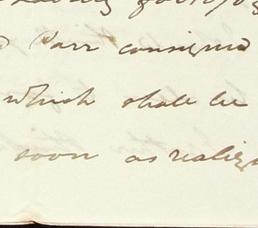 Parr consigned
which shall be
soon as realiz